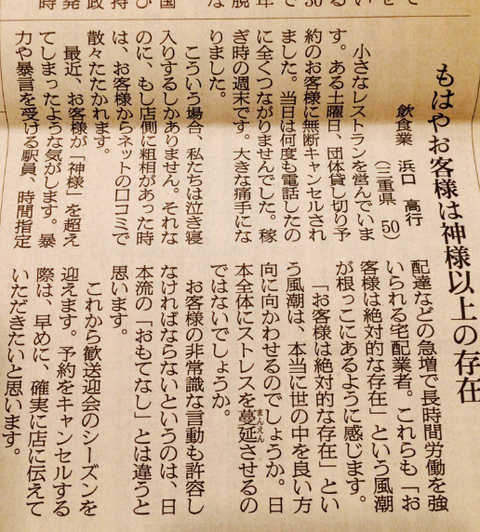 もはやお客様は神様以上の存在
飲食業　浜口　高行
（三重県　50）
小さなレストランを営んでいま
す。ある土曜日、団体貸し切り予
約のお客様に無断キャンセルされ
ました。当日は何度も電話したの
に全くつながりませんでした。稼
ぎ時の週末です。大きな痛手にな
りました。
こういう場合、私たちは泣き寝
入りするしかありません。それな
のに、もし店側に粗相があった時
は、お客様からネットの口コミで
散々たたかれます。
最近、お客様が「神様」を超え
てしまったような気がします。暴
力や暴言を受ける駅員、時間指定
配達などの急増で長時間労働を強
いられる宅配業者。これらも「お
客様は絶対的な存在」という風潮
が根っこにあるように感じます。
「お客様は絶対的な存在」とい
う風潮は、本当に世の中を良い方
向に向かわせるのでしょうか。日
本全体にストレスを蔓延まんえんさせるの
ではないでしょうか。
お客様の非常識な言動も許容し
なければならないというのは、日
本流の「おもてなし」とは違うと
思います。
これから歓送迎会のシーズンを
迎えます。予約をキャンセルする
際は、早めに、確実に店に伝えて
いただきたいと思います。